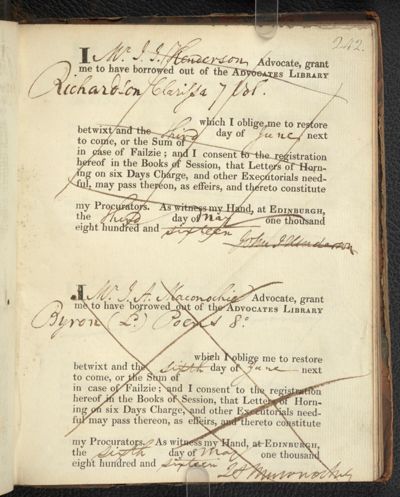 242.
I Mr. J. J. Henderson Advocate, grant
me to have borrowed out of the ADVOCATES LIBRARY
Richardson Clarissa 7 Vol.
which I oblige me to restore
betwixt and the third day of June next
to come, or the Sum of
in case of Failzie; and I consent to the registration
hereof in the Books of Session, that Letters of Horn-
ing on six Days Charge, and other Executorials need-
ful, may pass thereon, as effeirs, and thereto constitute
my Procurators. As witness my Hand, at EDINBURGH,
the third day of May one thousand
eight hundred and sixteen
John J Henderson
I Mr. J. A. Maconochie Advocate, grant
me to have borrowed out of the ADVOCATES LIBRARY
Byron (L.) Poems 8o.
which I oblige me to restore
betwixt and the sixth day of June next
to come, or the Sum of
in case of Failzie; and I consent to the registration
hereof in the Books of Session, that Letters of Horn-
ing on six Days Charge, and other Executorials need-
ful may pass thereon, as effeirs, and thereto constitute
my Procurators. As witness my Hand, at EDINBURGH,
the sixth day of May one thousand
eight hundred and sixteen
J A Maconochie